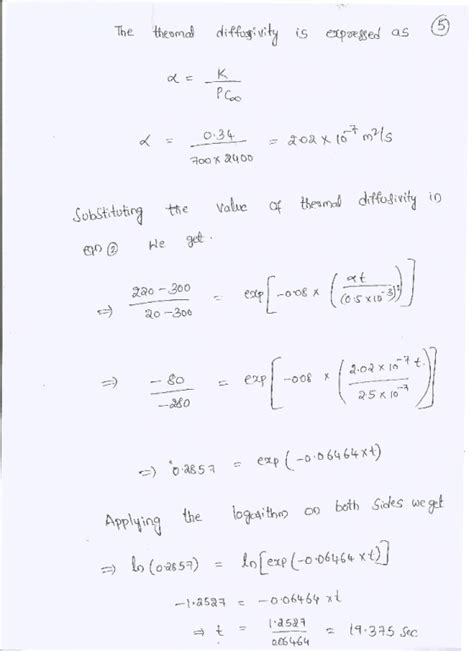 The thermal diffusivity is expressed as ⑤
α = K / ρC∞
α = 0.34 / 700 × 2400 = 2.02 × 10^-7 m²/s
Substituting the value of thermal diffusivity in
eqn ② we get.
⇒ 220 - 300 / 20 - 300 = exp[-0.08 × (αt / (0.5 × 10^-3)²)]
⇒ -80 / -280 = exp[-0.08 × (2.02 × 10^-7 t / 2.5 × 10^-7)]
⇒ 0.2857 = exp(-0.06464 × t)
Applying the logarithm on both sides we get
⇒ ln(0.2857) = ln[exp(-0.06464 × t)]
-1.2527 = -0.06464 × t
⇒ t = 1.2527 / 0.06464 = 19.375 sec